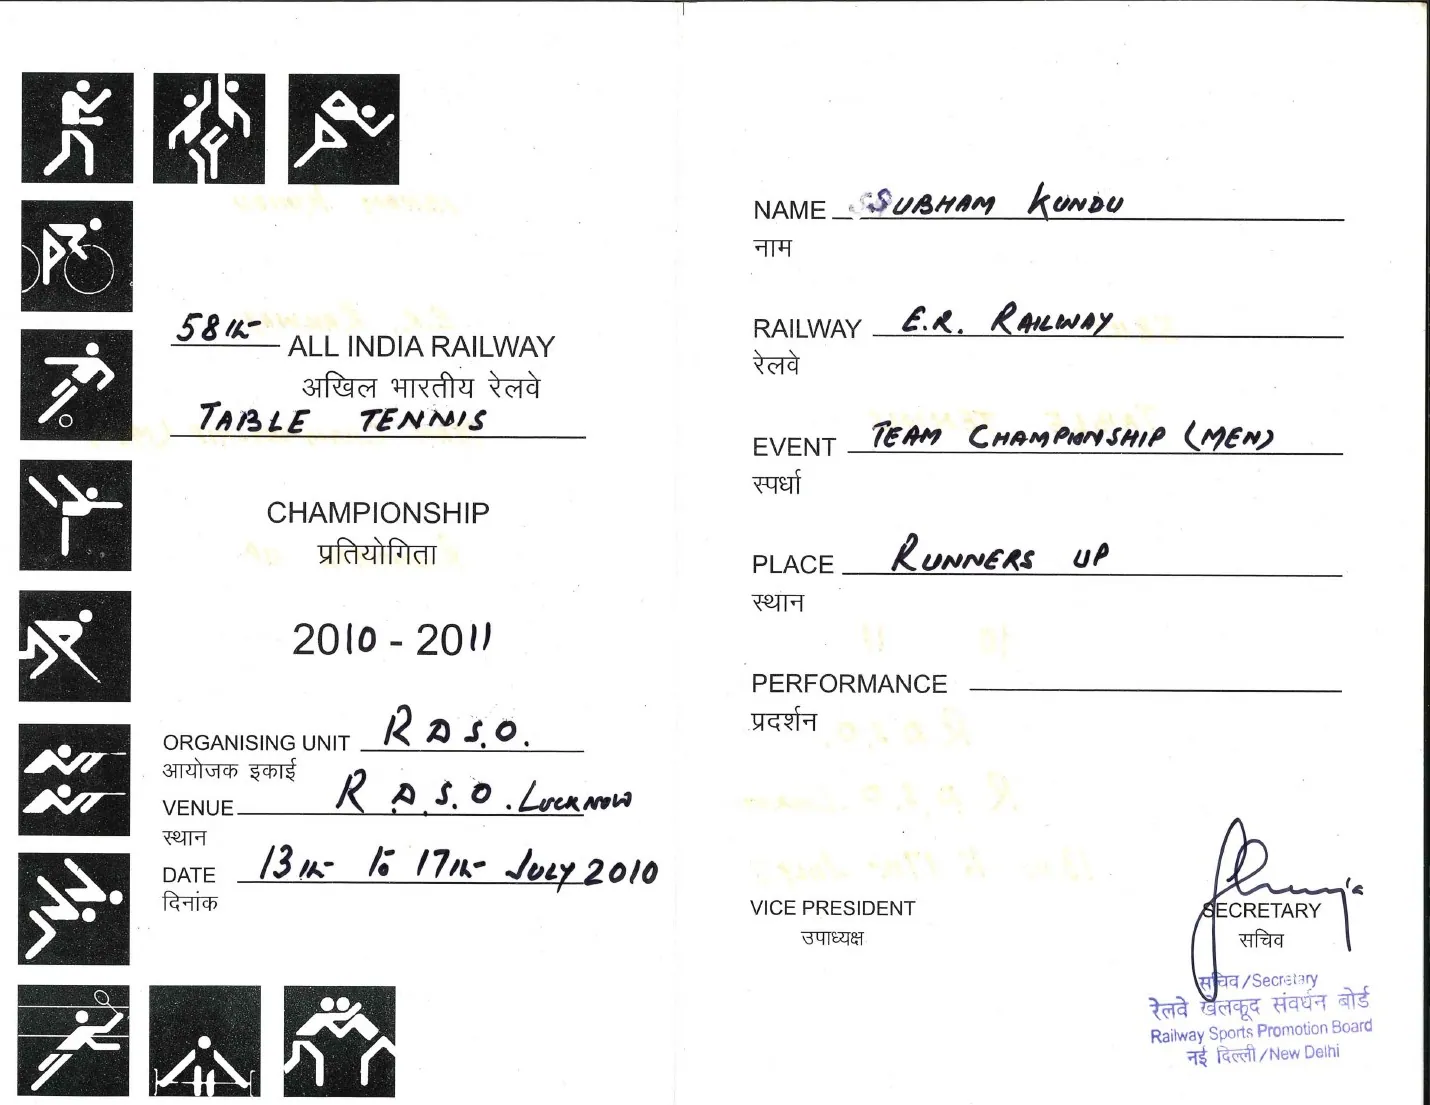 58th
ALL INDIA RAILWAY
अखिल भारतीय रेलवे
TABLE TENNIS
CHAMPIONSHIP
प्रतियोगिता
2010 - 2011
ORGANISING UNIT R.D.S.O.
आयोजक इकाई
VENUE R.D.S.O. LUCKNOW
स्थान
DATE 13th to 17th July 2010
दिनांक
NAME SUBHAM KUNDU
नाम
RAILWAY E.R. RAILWAY
रेलवे
EVENT TEAM CHAMPIONSHIP (MEN)
स्पर्धा
PLACE RUNNERS UP
स्थान
PERFORMANCE
प्रदर्शन
VICE PRESIDENT
उपाध्यक्ष
SECRETARY
सचिव
सचिव/Secretary
रेलवे खेलकूद संवर्धन बोर्ड
Railway Sports Promotion Board
नई दिल्ली/New Delhi